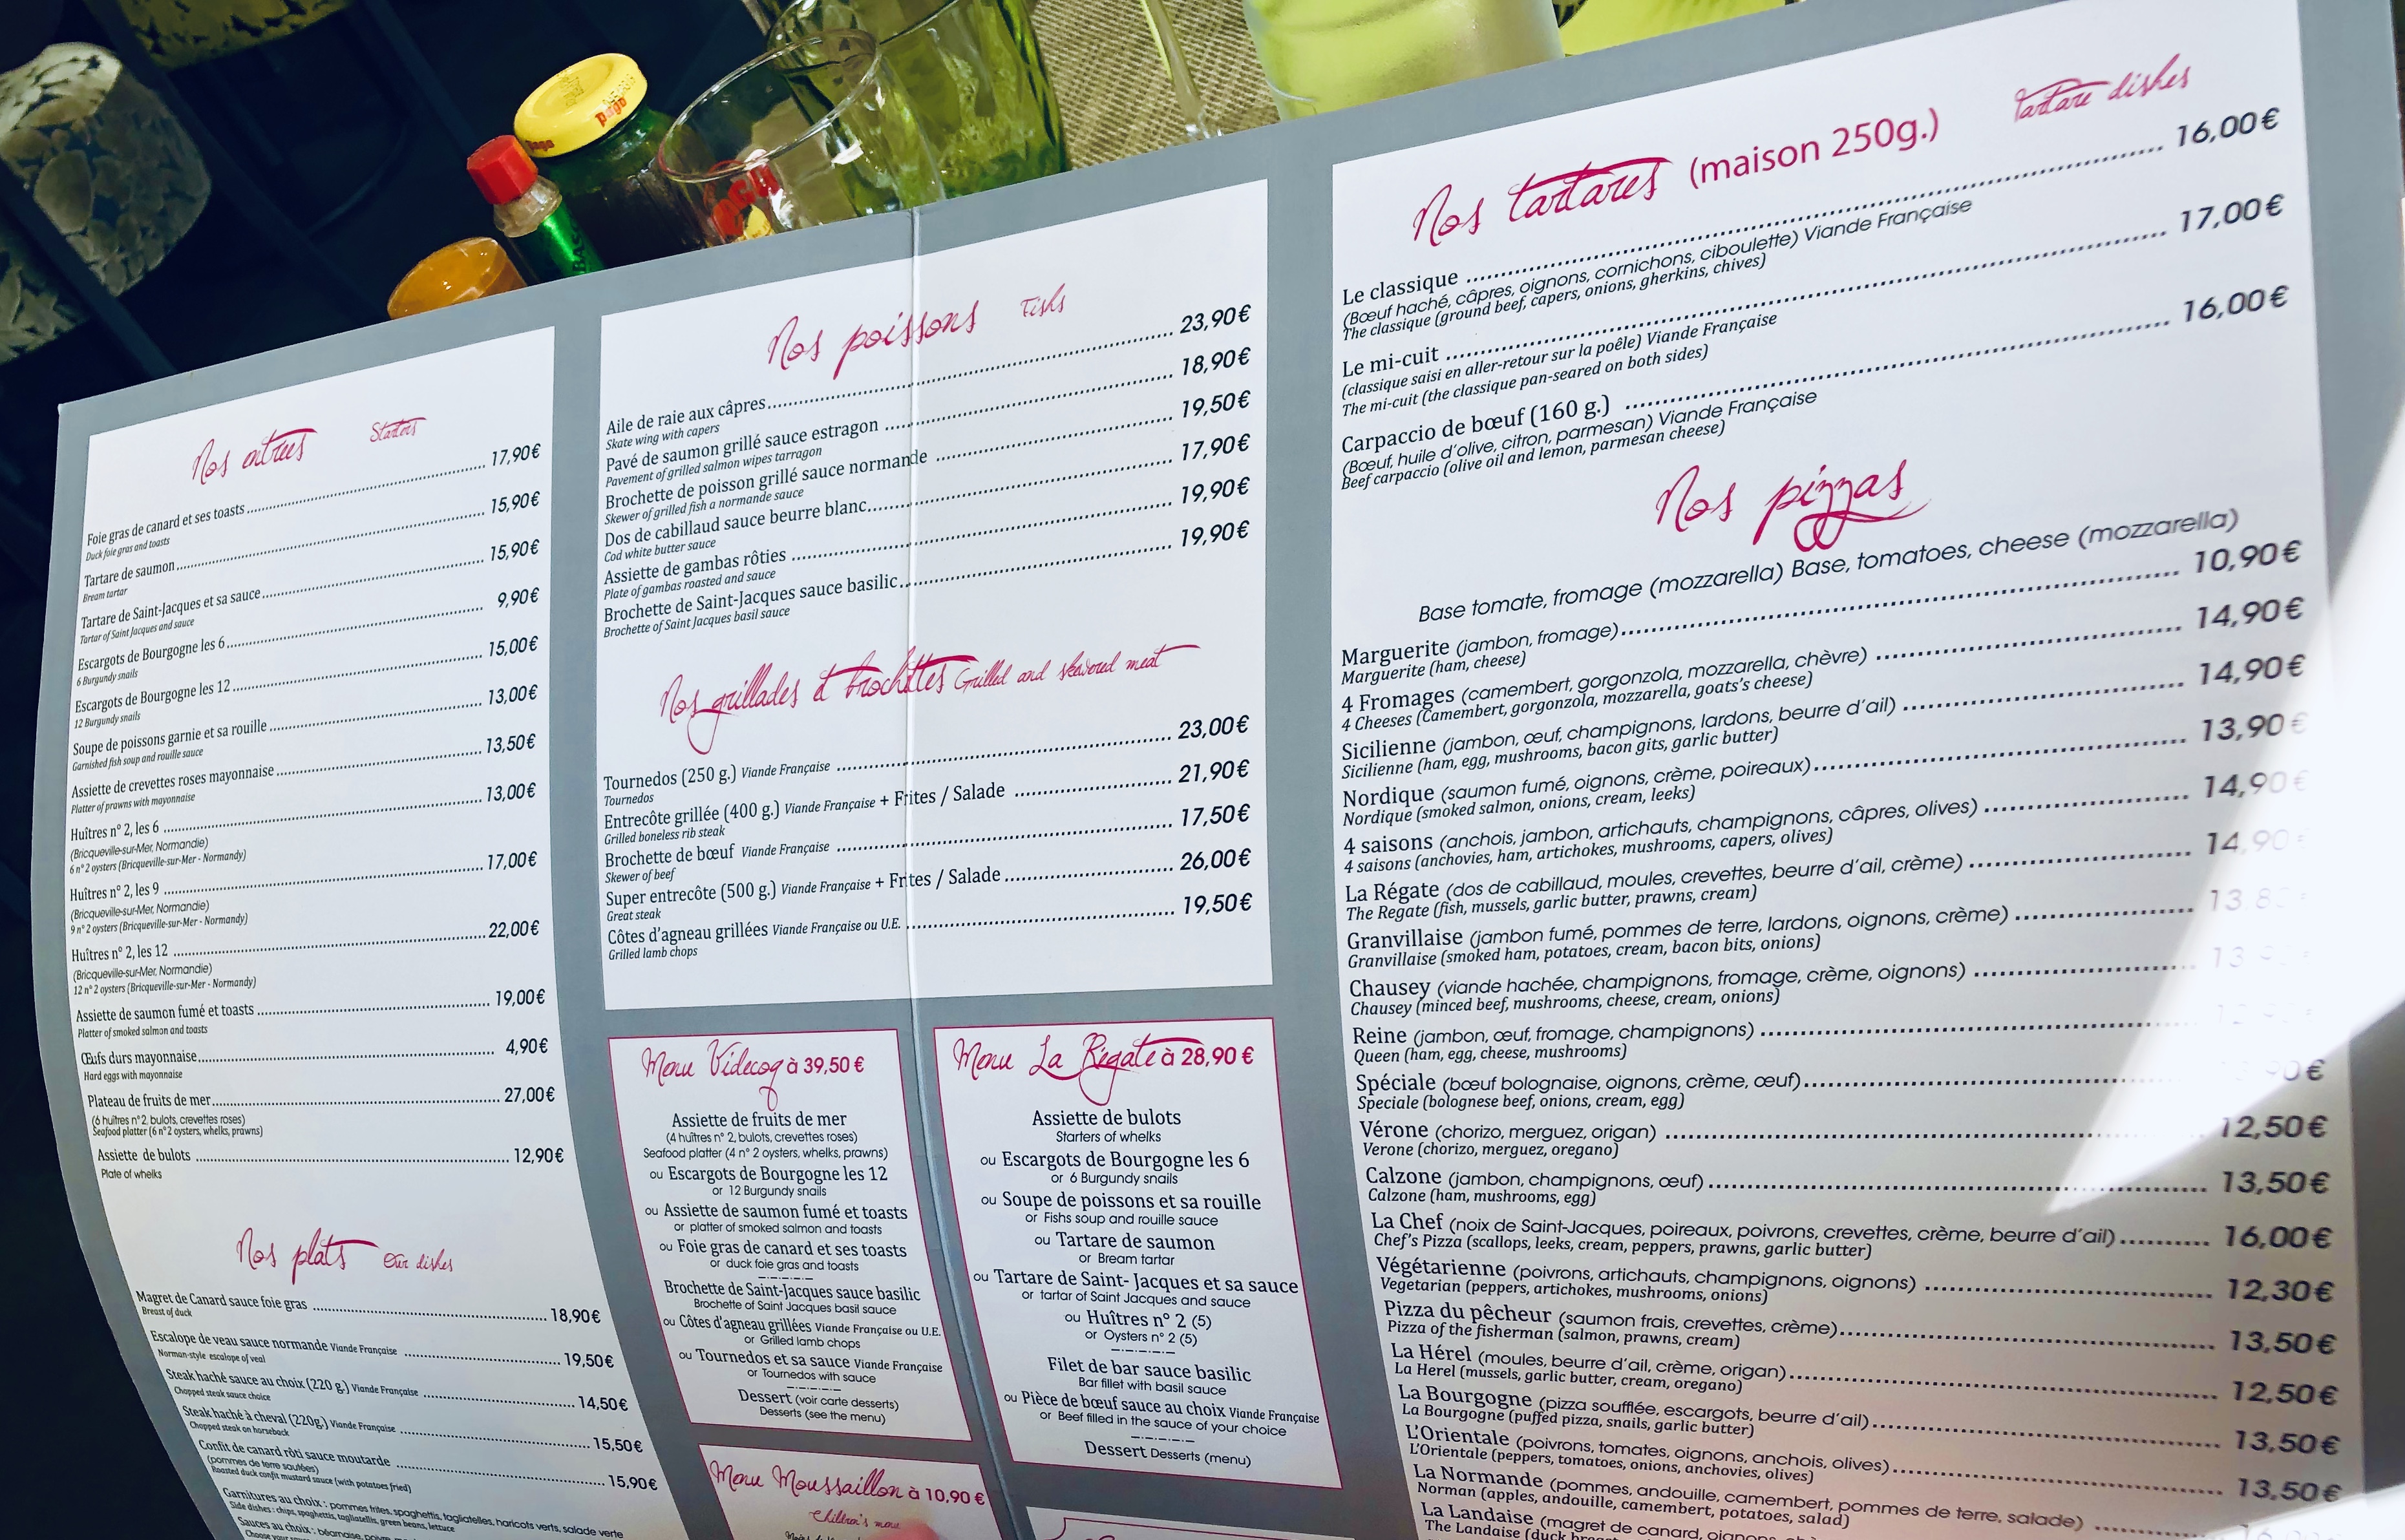 Pago
Nos entrées Starters
Foie gras de canard et ses toasts 17,90€
Duck foie gras and toasts
Tartare de saumon 15,90€
Bream tartar
Tartare de Saint-Jacques et sa sauce 15,90€
Tartar of Saint Jacques and sauce
Escargots de Bourgogne les 6 9,90€
6 Burgundy snails
Escargots de Bourgogne les 12 15,00€
12 Burgundy snails
Soupe de poissons garnie et sa rouille 13,00€
Garnished fish soup and rouille sauce
Assiette de crevettes roses mayonnaise 13,50€
Platter of prawns with mayonnaise
Huîtres n° 2, les 6 13,00€
(Bricqueville-sur-Mer, Normandie)
6 n° 2 oysters (Bricqueville-sur-Mer - Normandy)
Huîtres n° 2, les 9 17,00€
(Bricqueville-sur-Mer, Normandie)
9 n° 2 oysters (Bricqueville-sur-Mer - Normandy)
Huîtres n° 2, les 12 22,00€
(Bricqueville-sur-Mer, Normandie)
12 n° 2 oysters (Bricqueville-sur-Mer - Normandy)
Assiette de saumon fumé et toasts 19,00€
Platter of smoked salmon and toasts
Œufs durs mayonnaise 4,90€
Hard eggs with mayonnaise
Plateau de fruits de mer 27,00€
(6 huîtres n°2, bulots, crevettes roses)
Seafood platter (6 n°2 oysters, whelks, prawns)
Assiette de bulots 12,90€
Plate of whelks
Nos plats Our dishes
Magret de Canard sauce foie gras 18,90€
Breast of duck
Escalope de veau sauce normande Viande Française 19,50€
Norman-style escalope of veal
Steak haché sauce au choix (220 g.) Viande Française 14,50€
Chopped steak sauce choice
Steak haché à cheval (220g.) Viande Française 15,50€
Chopped steak on horseback
Confit de canard rôti sauce moutarde 15,90€
(pommes de terre sautées)
Roasted duck confit mustard sauce (with potatoes fried)
Garnitures au choix : pommes frites, spaghettis, tagliatelles, haricots verts, salade verte
Side dishes : chips, spaghettis, tagliatellis, green beans, lettuce
Sauces au choix : béarnaise, poivre
Nos poissons Fishs
Aile de raie aux câpres 23,90€
Skate wing with capers
Pavé de saumon grillé sauce estragon 18,90€
Pavement of grilled salmon wipes tarragon
Brochette de poisson grillé sauce normande 19,50€
Skewer of grilled fish a normande sauce
Dos de cabillaud sauce beurre blanc 17,90€
Cod white butter sauce
Assiette de gambas rôties 19,90€
Plate of gambas roasted and sauce
Brochette de Saint-Jacques sauce basilic 19,90€
Brochette of Saint Jacques basil sauce
Nos grillades et brochettes Grilled and skewored meat
Tournedos (250 g.) Viande Française 23,00€
Tournedos
Entrecôte grillée (400 g.) Viande Française + Frites / Salade 21,90€
Grilled boneless rib steak
Brochette de bœuf Viande Française 17,50€
Skewer of beef
Super entrecôte (500 g.) Viande Française + Frites / Salade 26,00€
Great steak
Côtes d'agneau grillées Viande Française ou U.E. 19,50€
Grilled lamb chops
Menu Videcoq à 39,50 €
Assiette de fruits de mer
(4 huîtres n° 2, bulots, crevettes roses)
Seafood platter (4 n° 2 oysters, whelks, prawns)
ou Escargots de Bourgogne les 12
or 12 Burgundy snails
ou Assiette de saumon fumé et toasts
or platter of smoked salmon and toasts
ou Foie gras de canard et ses toasts
or duck foie gras and toasts
Brochette de Saint-Jacques sauce basilic
Brochette of Saint Jacques basil sauce
ou Côtes d'agneau grillées Viande Française ou U.E.
or Grilled lamb chops
ou Tournedos et sa sauce Viande Française
or Tournedos with sauce
Dessert (voir carte desserts)
Desserts (see the menu)
Menu Moussaillon à 10,90 €
Children's menu
Menu La Régate à 28,90 €
Assiette de bulots
Starters of whelks
ou Escargots de Bourgogne les 6
or 6 Burgundy snails
ou Soupe de poissons et sa rouille
or Fishs soup and rouille sauce
ou Tartare de saumon
or Bream tartar
ou Tartare de Saint- Jacques et sa sauce
or tartar of Saint Jacques and sauce
ou Huîtres n° 2 (5)
or Oysters n° 2 (5)
Filet de bar sauce basilic
Bar fillet with basil sauce
ou Pièce de bœuf sauce au choix Viande Française
or Beef filled in the sauce of your choice
Dessert Desserts (menu)
Nos tartares (maison 250g.) Tartare dishes
Le classique 16,00€
(Bœuf haché, câpres, oignons, cornichons, ciboulette) Viande Française
The classique (ground beef, capers, onions, gherkins, chives)
Le mi-cuit 17,00€
(classique saisi en aller-retour sur la poêle) Viande Française
The mi-cuit (the classique pan-seared on both sides)
Carpaccio de bœuf (160 g.) 16,00€
(Bœuf, huile d'olive, citron, parmesan) Viande Française
Beef carpaccio (olive oil and lemon, parmesan cheese)
Nos pizzas
Base tomate, fromage (mozzarella) Base, tomatoes, cheese (mozzarella)
Marguerite (jambon, fromage) 10,90€
Marguerite (ham, cheese)
4 Fromages (camembert, gorgonzola, mozzarella, chèvre) 14,90€
4 Cheeses (Camembert, gorgonzola, mozzarella, goats's cheese)
Sicilienne (jambon, œuf, champignons, lardons, beurre d'ail) 14,90€
Sicilienne (ham, egg, mushrooms, bacon gits, garlic butter)
Nordique (saumon fumé, oignons, crème, poireaux) 13,90€
Nordique (smoked salmon, onions, cream, leeks)
4 saisons (anchois, jambon, artichauts, champignons, câpres, olives) 14,90€
4 saisons (anchovies, ham, artichokes, mushrooms, capers, olives)
La Régate (dos de cabillaud, moules, crevettes, beurre d'ail, crème) 14,90
The Regate (fish, mussels, garlic butter, prawns, cream)
Granvillaise (jambon fumé, pommes de terre, lardons, oignons, crème)
Granvillaise (smoked ham, potatoes, cream, bacon bits, onions)
Chausey (viande hachée, champignons, fromage, crème, oignons)
Chausey (minced beef, mushrooms, cheese, cream, onions)
Reine (jambon, œuf, fromage, champignons)
Queen (ham, egg, cheese, mushrooms)
Spéciale (bœuf bolognaise, oignons, crème, œuf)
Speciale (bolognese beef, onions, cream, egg)
Vérone (chorizo, merguez, origan) 12,50€
Verone (chorizo, merguez, oregano)
Calzone (jambon, champignons, œuf) 13,50€
Calzone (ham, mushrooms, egg)
La Chef (noix de Saint-Jacques, poireaux, poivrons, crevettes, crème, beurre d'ail) 16,00€
Chef's Pizza (scallops, leeks, cream, peppers, prawns, garlic butter)
Végétarienne (poivrons, artichauts, champignons, oignons) 12,30€
Vegetarian (peppers, artichokes, mushrooms, onions)
Pizza du pêcheur (saumon frais, crevettes, crème) 13,50€
Pizza of the fisherman (salmon, prawns, cream)
La Hérel (moules, beurre d'ail, crème, origan) 12,50€
La Herel (mussels, garlic butter, cream, oregano)
La Bourgogne (pizza soufflée, escargots, beurre d'ail) 13,50€
La Bourgogne (puffed pizza, snails, garlic butter)
L'Orientale (poivrons, tomates, oignons, anchois, olives) 13,50€
L'Orientale (peppers, tomatoes, onions, anchovies, olives)
La Normande (pommes, andouille, camembert, pommes de terre, salade)
Norman (apples, andouille, camembert, potatoes, salad)
La Landaise (magret de canard,
The Landaise (duck